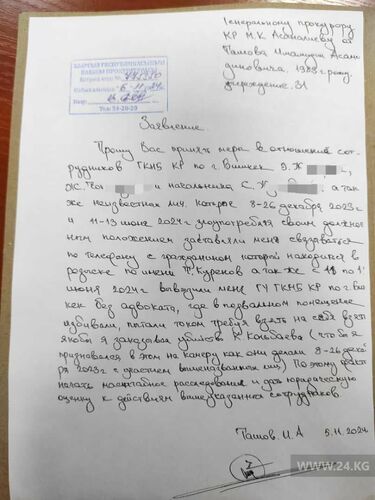 Генеральному прокурору
КР М.К Асаналиеву от
Ташова Имамидин Асами-
диновича. 1983г рожд.
учреждение. 31
КЫРГЫЗ РЕСПУБЛИКАСЫНЫН
БАШКЫ ПРОКУРАТУРАСЫ
6-11
Тел: 54-20-20
Заявление.
Прошу Вас принять мера в отношении сот-
рудников ГКНБ КР по г. Бишкек Э.Ж
Ж. и начальника С. К а так-
же неизвестных лиц. Которые 8-26 декабря 2023г
и 11-13 июня 2024г злоупотребляя своим должност-
ным положением заставляли меня связываться
по телефону с гражданином который находится в
розыске по имени Т. Куренов а также с 11 по 13
июня 2024г вывозили меня ГУ ГКНБ КР по г. Биш
кек без адвоката, где в подвальном помещение
избивали, пытали током требуя взять на себя
якобы я заказывал убийство К. Конбаева (чтоб я
признавался в этом на камеру как они делали 8-26 декаб
ря 2023г с участием вышеназванных лиц) По этому факту
начать масштабное расследование и дать юридическую
оценку к действиям вышеуказанных сотрудников.
Ташов. И.А 5.11.2024
WWW.24.KG